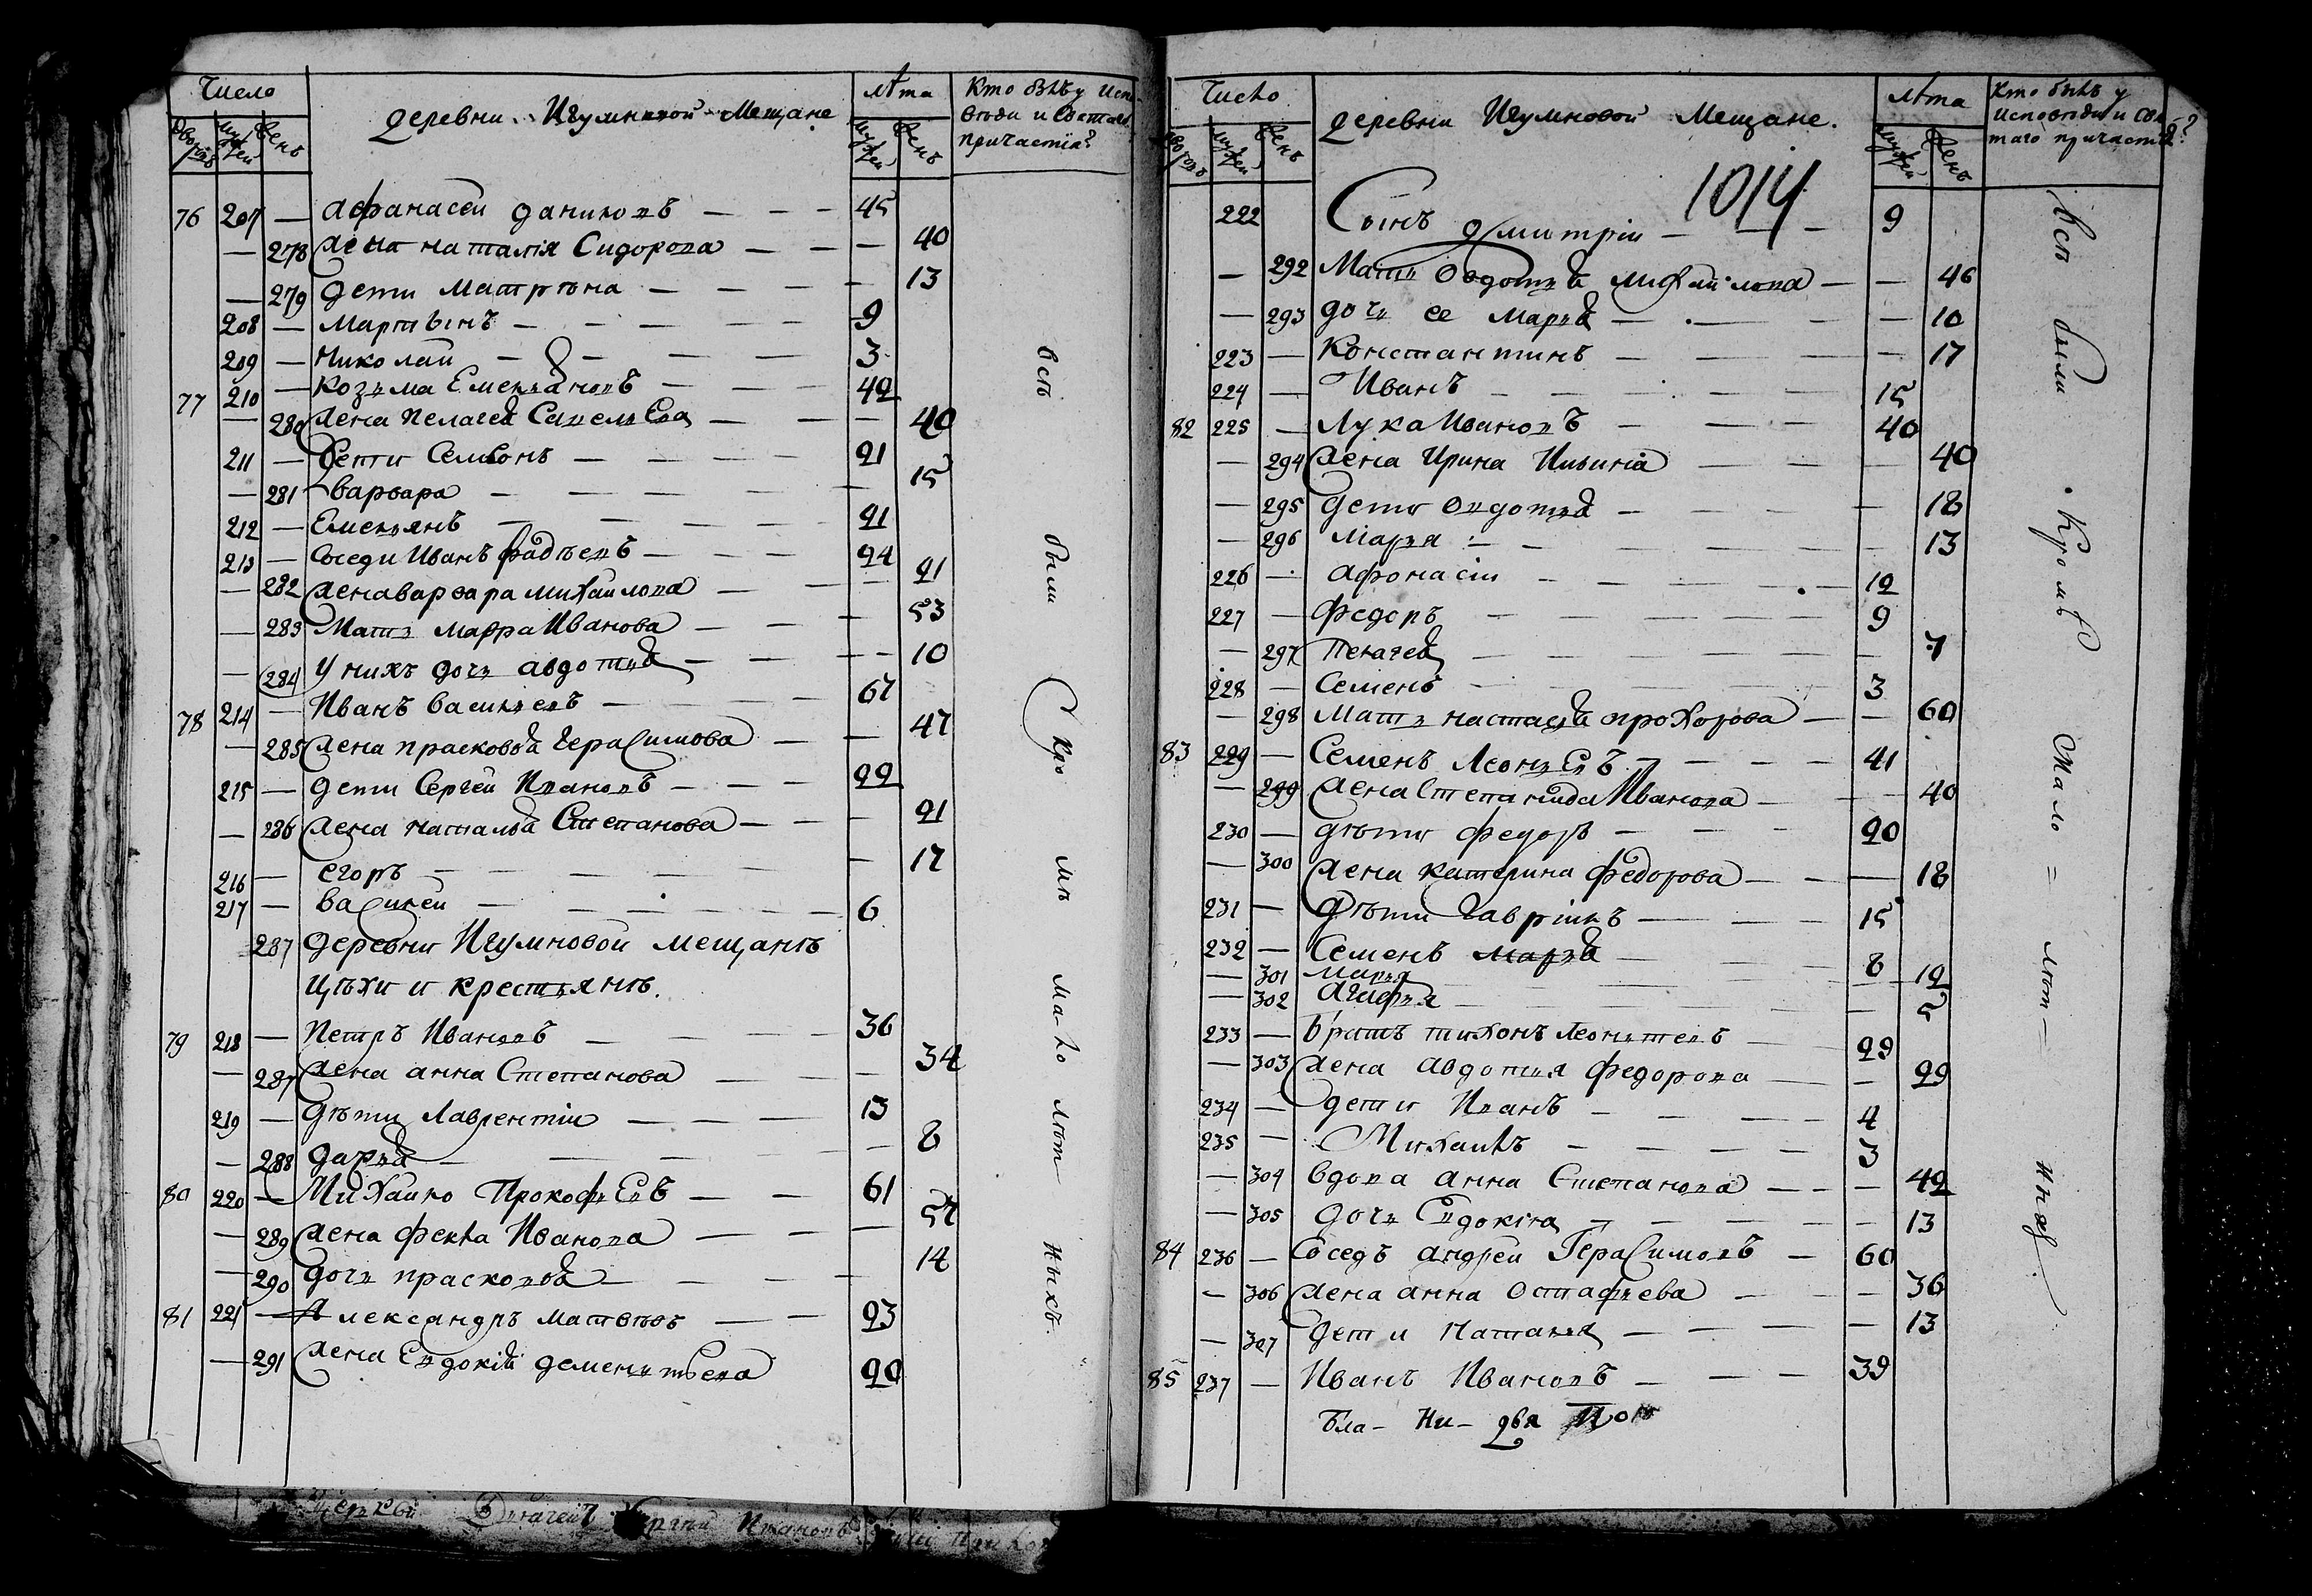 Число
деревни Игумновой Мещане
лѣта
Кто былъ у Испо-
вѣди и Святаго
причастія?
дворовъ мужей женъ
мужей женъ
76 207 — Афанасей даниловъ — — — 45
— 278 жена наталія Сидорова — — — 40
— 279 дети Матрѣна — — — — 13
208 — Мартынъ — — — — — 9
209 — Николай — — — — 3
77 210 — Козьма Емельяновъ — — — 42
— 280 жена Пелагея Савельева — — — 40
211 — дети Семионъ — — — — 21
— 281 варвара — — — — — 15
212 — Емельянъ — — — — — 21
213 — Соседи Иванъ фадѣевъ — — — 24
— 282 жена варвара михайлова — — — 21
— 283 Мать мафра Иванова — — — 53
— 284 у нихъ дочь авдотья — — — — 10
78 214 — Иванъ васильевъ — — — 67
— 285 жена прасковья герасимова — — 47
215 — дети Сергей Ивановъ — — — 22
— 286 жена наталья Степанова — — — 21
216 — егоръ — — — — — — 17
217 — василей — — — — — — 6
287 деревни Игумновой мещанъ
цѣхи и крестьянъ.
79 218 — Петръ Ивановъ — — — 36
— 287 жена анна Степанова — — — 34
219 — дѣти Лаврентіи — — — 13
— 288 дарья — — — — — 8
80 220 — Михайло Прокофьевъ — — 61
— 289 жена фекла Иванова — — — 57
— 290 дочь прасковья — — — — 14
81 221 — Александръ матвѣевъ — — 23
— 291 жена Евдокія дементьева 20
всѣ были кро мѣ ма-ло лѣт- ныхъ.
Число
деревни Игумновой Мещане.
лѣта
Кто былъ у
исповѣди и свя-
таго причастія?
дворовъ мужей женъ
мужей женъ
1014
222 Сынъ дмитріи — — — 9
— 292 Мать Овдотья михайлова — — 46
— 293 дочь ее марья — — — — 10
223 — Константинъ — — — — 17
224 — Иванъ — — — — — 15
82 225 — Лука Ивановъ — — — 40
— 294 жена Ирина Ильина — — — 40
— 295 дети овдотья — — — — 18
— 296 Марья — — — — — 13
226 — афонасіи — — — — — 12
227 — федоръ — — — — — 9
— 297 Пелагея — — — — — 7
228 — Семенъ — — — — 3
— 298 мать настасья прохорова — — 60
83 229 — Семенъ Леоньевъ — — — — 41
— 299 жена Степанида Иванова — — — 40
230 — дѣти федоръ — — — 20
— 300 жена катерина федорова — — — 18
231 — дѣти гаврилъ — — — 15
232 — Семенъ марья — — — 8
— 301 марья — — — — 12
— 302 агафья — — — — 5
233 — братъ тихонъ Леонтьевъ — 29
— 303 жена авдотья федорова — — 29
234 — дети Иванъ — — — — 4
235 — Михаилъ — — — — 3
— 304 вдова анна Степанова — — — 42
— 305 дочь Евдокія — — — — — 13
84 236 — Соседъ андрей Герасимовъ — 60
— 306 жена анна остафьева — — — 36
— 307 дети Наталья — — — — 13
85 237 — Иванъ Ивановъ — — — 39
всѣ были кромѣ мало = лѣт= ныхъ